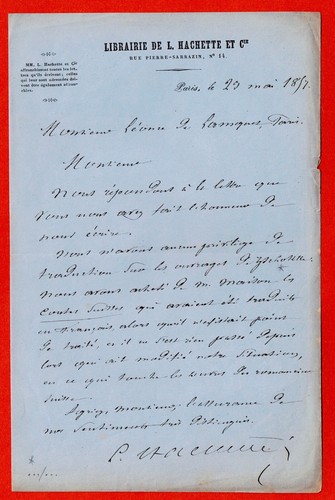 LIBRAIRIE DE L. HACHETTE ET Cie
RUE PIERRE-SARRAZIN, N° 14
MM. L. Hachette et Cie
affranchissent toutes les let-
tres qu'ils écrivent; celles
qui leur sont adressées doi-
vent être également affran-
chies.
Paris, le 23 mai 185
Monsieur Léonce de Paris
Monsieur
Nous répondons à la lettre que
vous nous avez fait l'honneur de
nous écrire.
Nous n'avons aucun privilège de
traduction sur les ouvrages de Zschokke.
Nous avons acheté de M. les
Contes Suisses qui avaient été traduits
en français alors qu'il n'existait point
de traité, et il ne s'est rien passé depuis
lors qui ait modifié notre situation,
en ce qui touche les œuvres du romancier
suisse.
Agréez, Monsieur, l'assurance de
nos sentiments très distingués.
L. Hachette